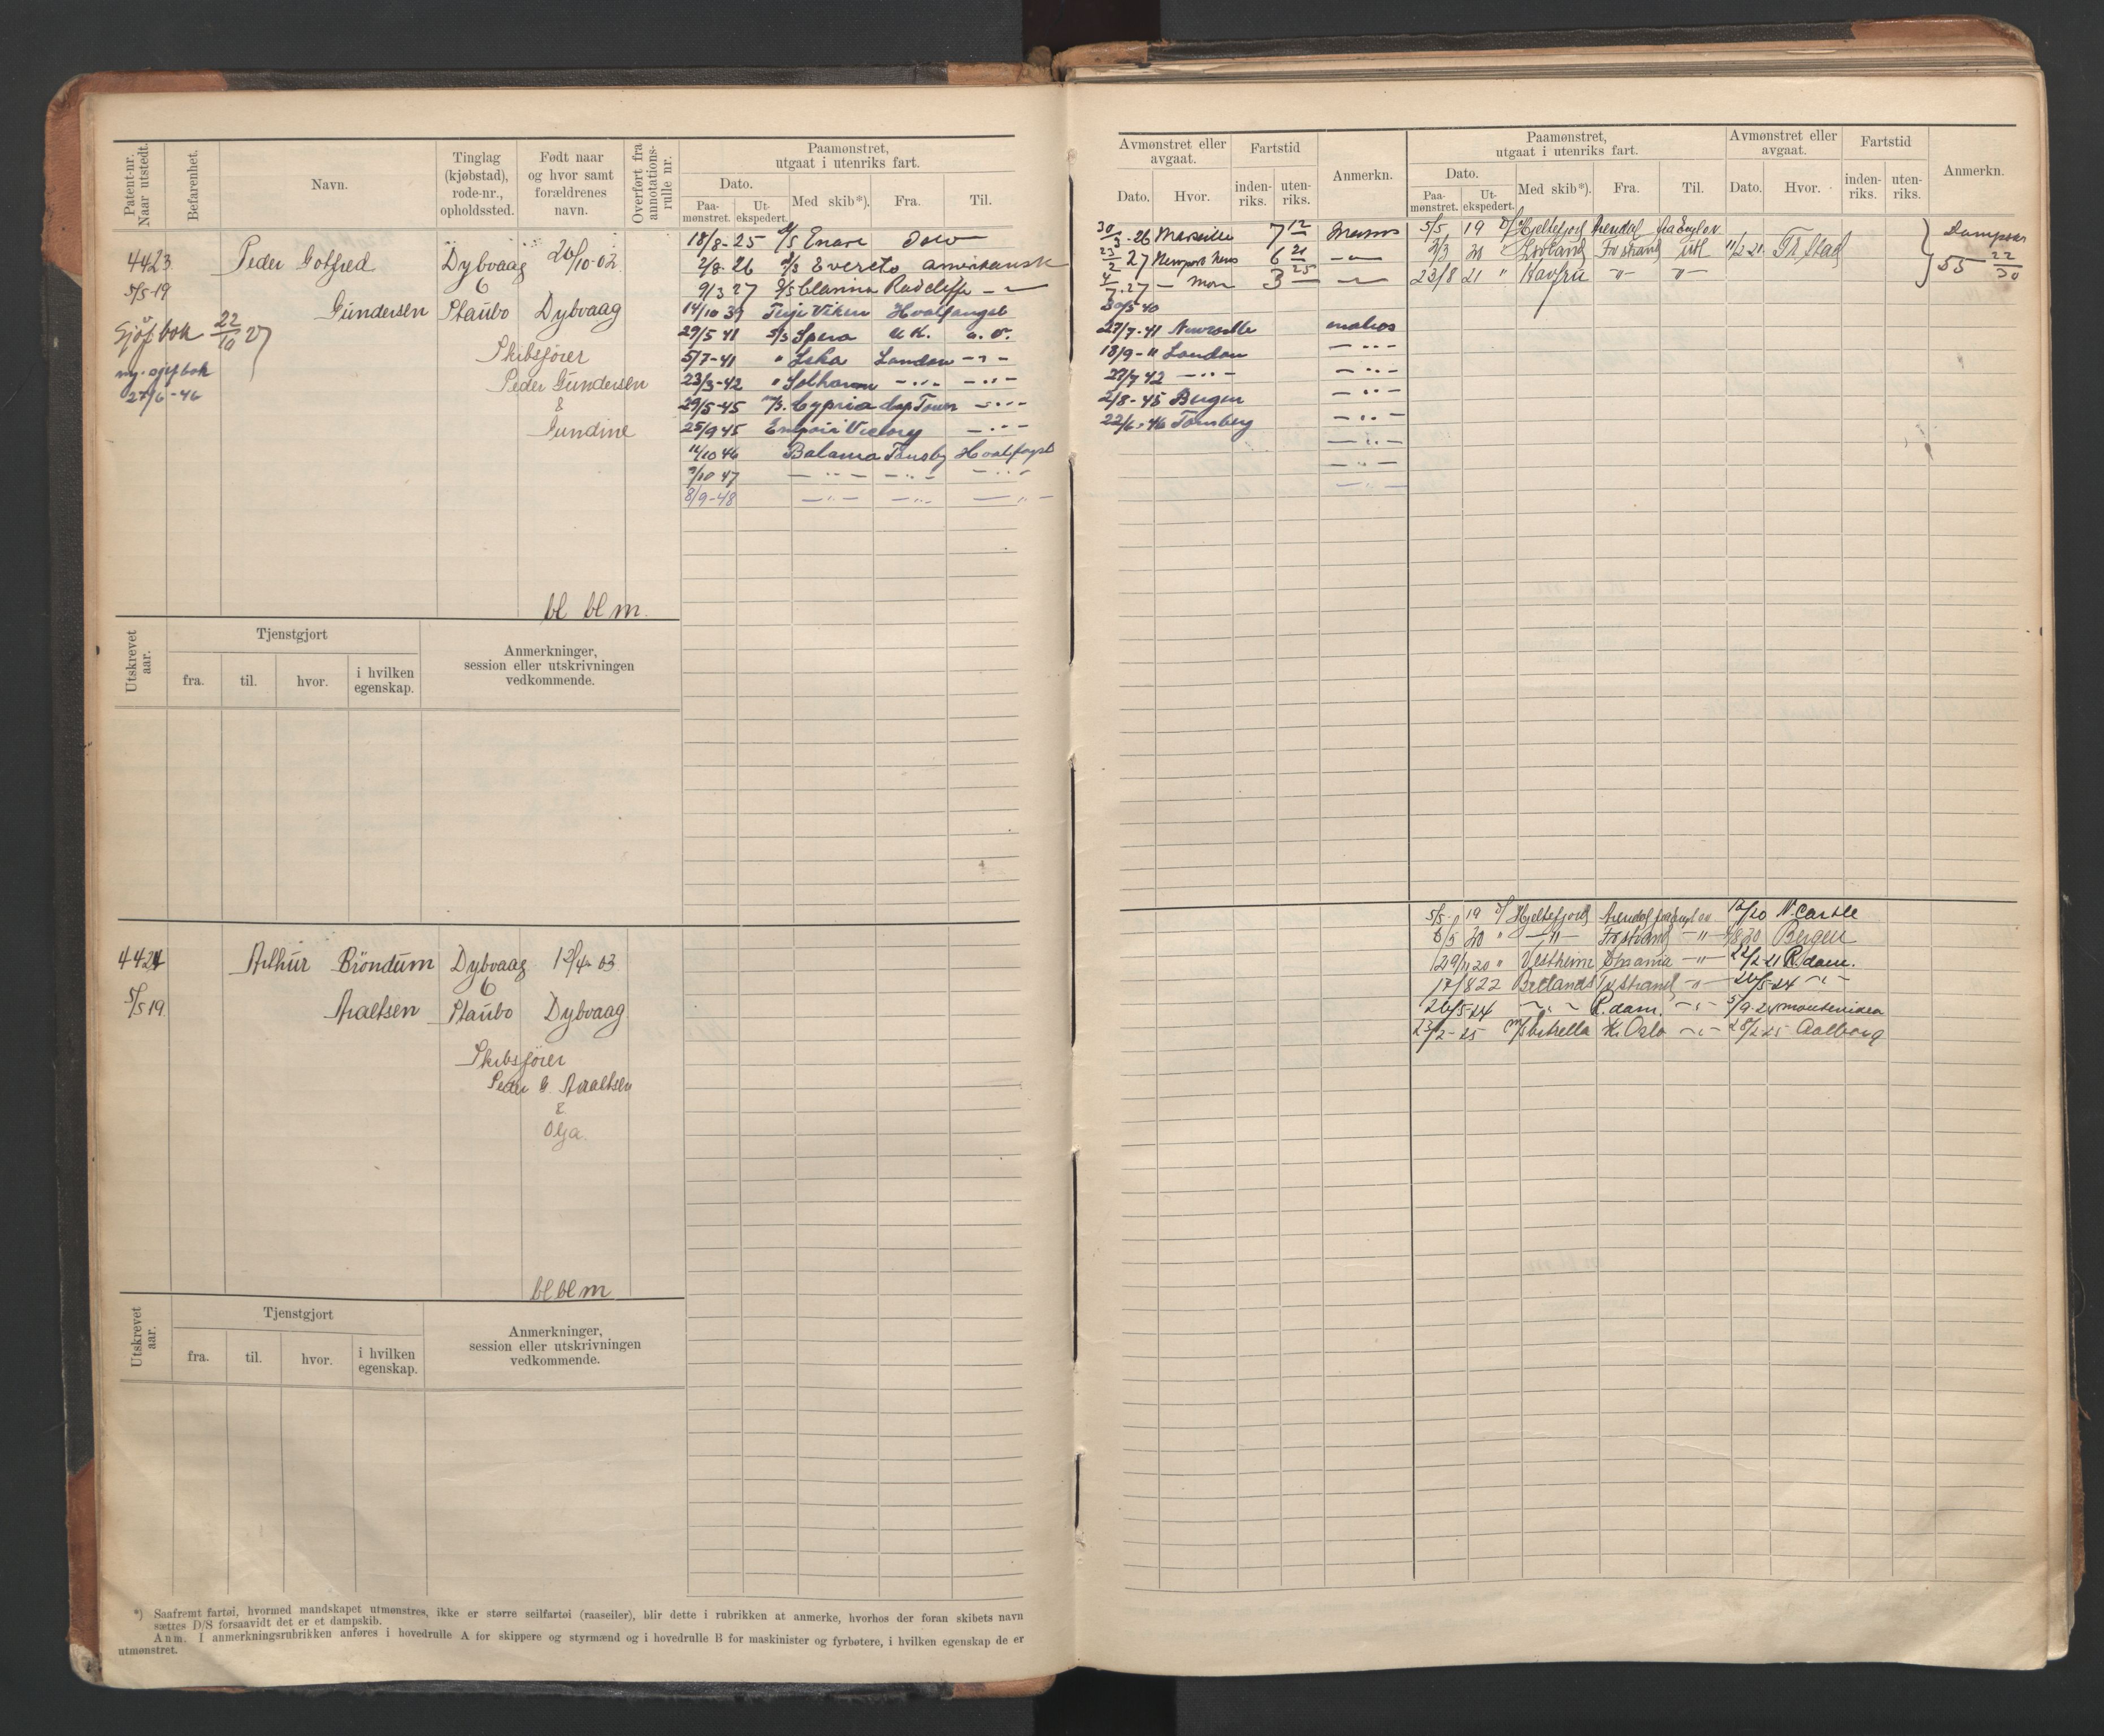 Patent-nr. Naar utstedt.
Befarenhet.
Navn.
Tinglag (kjøbstad), rode-nr., opholdssted.
Født naar og hvor samt forældrenes navn.
Overført fra annotations-rulle nr.
Paamønstret, utgaat i utenriks fart.
Dato.
Paa-mønstret.
Ut-ekspedert.
Med skib*).
Fra.
Til.
4423 Peder Gotfred Dybvaag 26/10-02
5/5-19 6
Gundersen Staubo Dybvaag
Sjøf bok 22/10 27
Skibsfører
ny sjøfbok
Peder Gundersen
27/6-46
&
Gundine
bl bl m.
18/8-25 Enare
2/8-26 D/S Evereto amerikansk
9/3 27 D/S Clarissa Radcliffe
14/10 39 Terje Viken Hvalfangst
29/5 41 S/S Spero U.K.
5/7-41 " Leka London - " -
23/3-42 " Solhavn - " - - " -
29/5-45 M/S. Cypria Cap Town - " -
25/9 45 Empire Victory - " -
11/10 46 Balaena Tønsbg Hvalfagst
9/10 47 - " - - " - - " -
8/9-48 - " - - " - - " -
Utskrevet aar.
Tjenstgjort
fra.
til.
hvor.
i hvilken egenskap.
Anmerkninger, session eller utskrivningen vedkommende.
4424 Arthur Bröndum Dybvaag 12/4-03
5/5 19 6
Araltsen Staubo Dybvaag
Skibsfører
Peder G. Araltsen
&
Olga.
bl bl m
Utskrevet aar.
Tjenstgjort
fra.
til.
hvor.
i hvilken egenskap.
Anmerkninger, session eller utskrivningen vedkommende.
*) Saafremt fartøi, hvormed mandskapet utmønstres, ikke er større seilfartøi (raaseiler), blir dette i rubrikken at anmerke, hvorhos der foran skibets navn
sættes D/S forsaavidt det er et dampskib.
Anm. I anmerkningsrubrikken anføres i hovedrulle A for skippere og styrmænd og i hovedrulle B for maskinister og fyrbøtere, i hvilken egenskap de er
utmønstret.
Avmønstret eller avgaat.
Dato.
Hvor.
Fartstid
inden-riks.
uten-riks.
Anmerkn.
Paamønstret, utgaat i utenriks fart.
Dato.
Paa-mønstret.
Ut-ekspedert.
Med skib*).
Fra.
Til.
Avmønstret eller avgaat.
Dato.
Hvor.
Fartstid
inden-riks.
uten-riks.
Anmerkn.
30/3-26 Marseille 7 12
5/5 19 D/S Hjeltefjord Arendal
23/2 27 Newport News 6 21 - " -
2/3 20 " Lovland Frstrand utl 11/2 21 Frstad
4/7-27 3 25
23/8 21 " Havfru - " - - " -
55 22/30
30/5-40
27/7-41 Newcastle matros
18/9-" London - " -
27/7 42 - " - - " -
2/8-45 Bergen - " -
22/6-46 Tønsberg - " -
- " -
- " -
5/5- 19 D/S Hjeltefjord Arendal N.Castle
8/5 20 " - " - Frstrand - " - Bergen
29/11 20 " Vestheim - " - R.dam.
17/8 22 Betlands Frstrand - " - 26/5-24 - " -
26/5-24 - " - R.dam. - " - 5/9-24 montevideo
23/2-25 M/S Estrella K. Oslo - " - 28/2 25 Aalborg